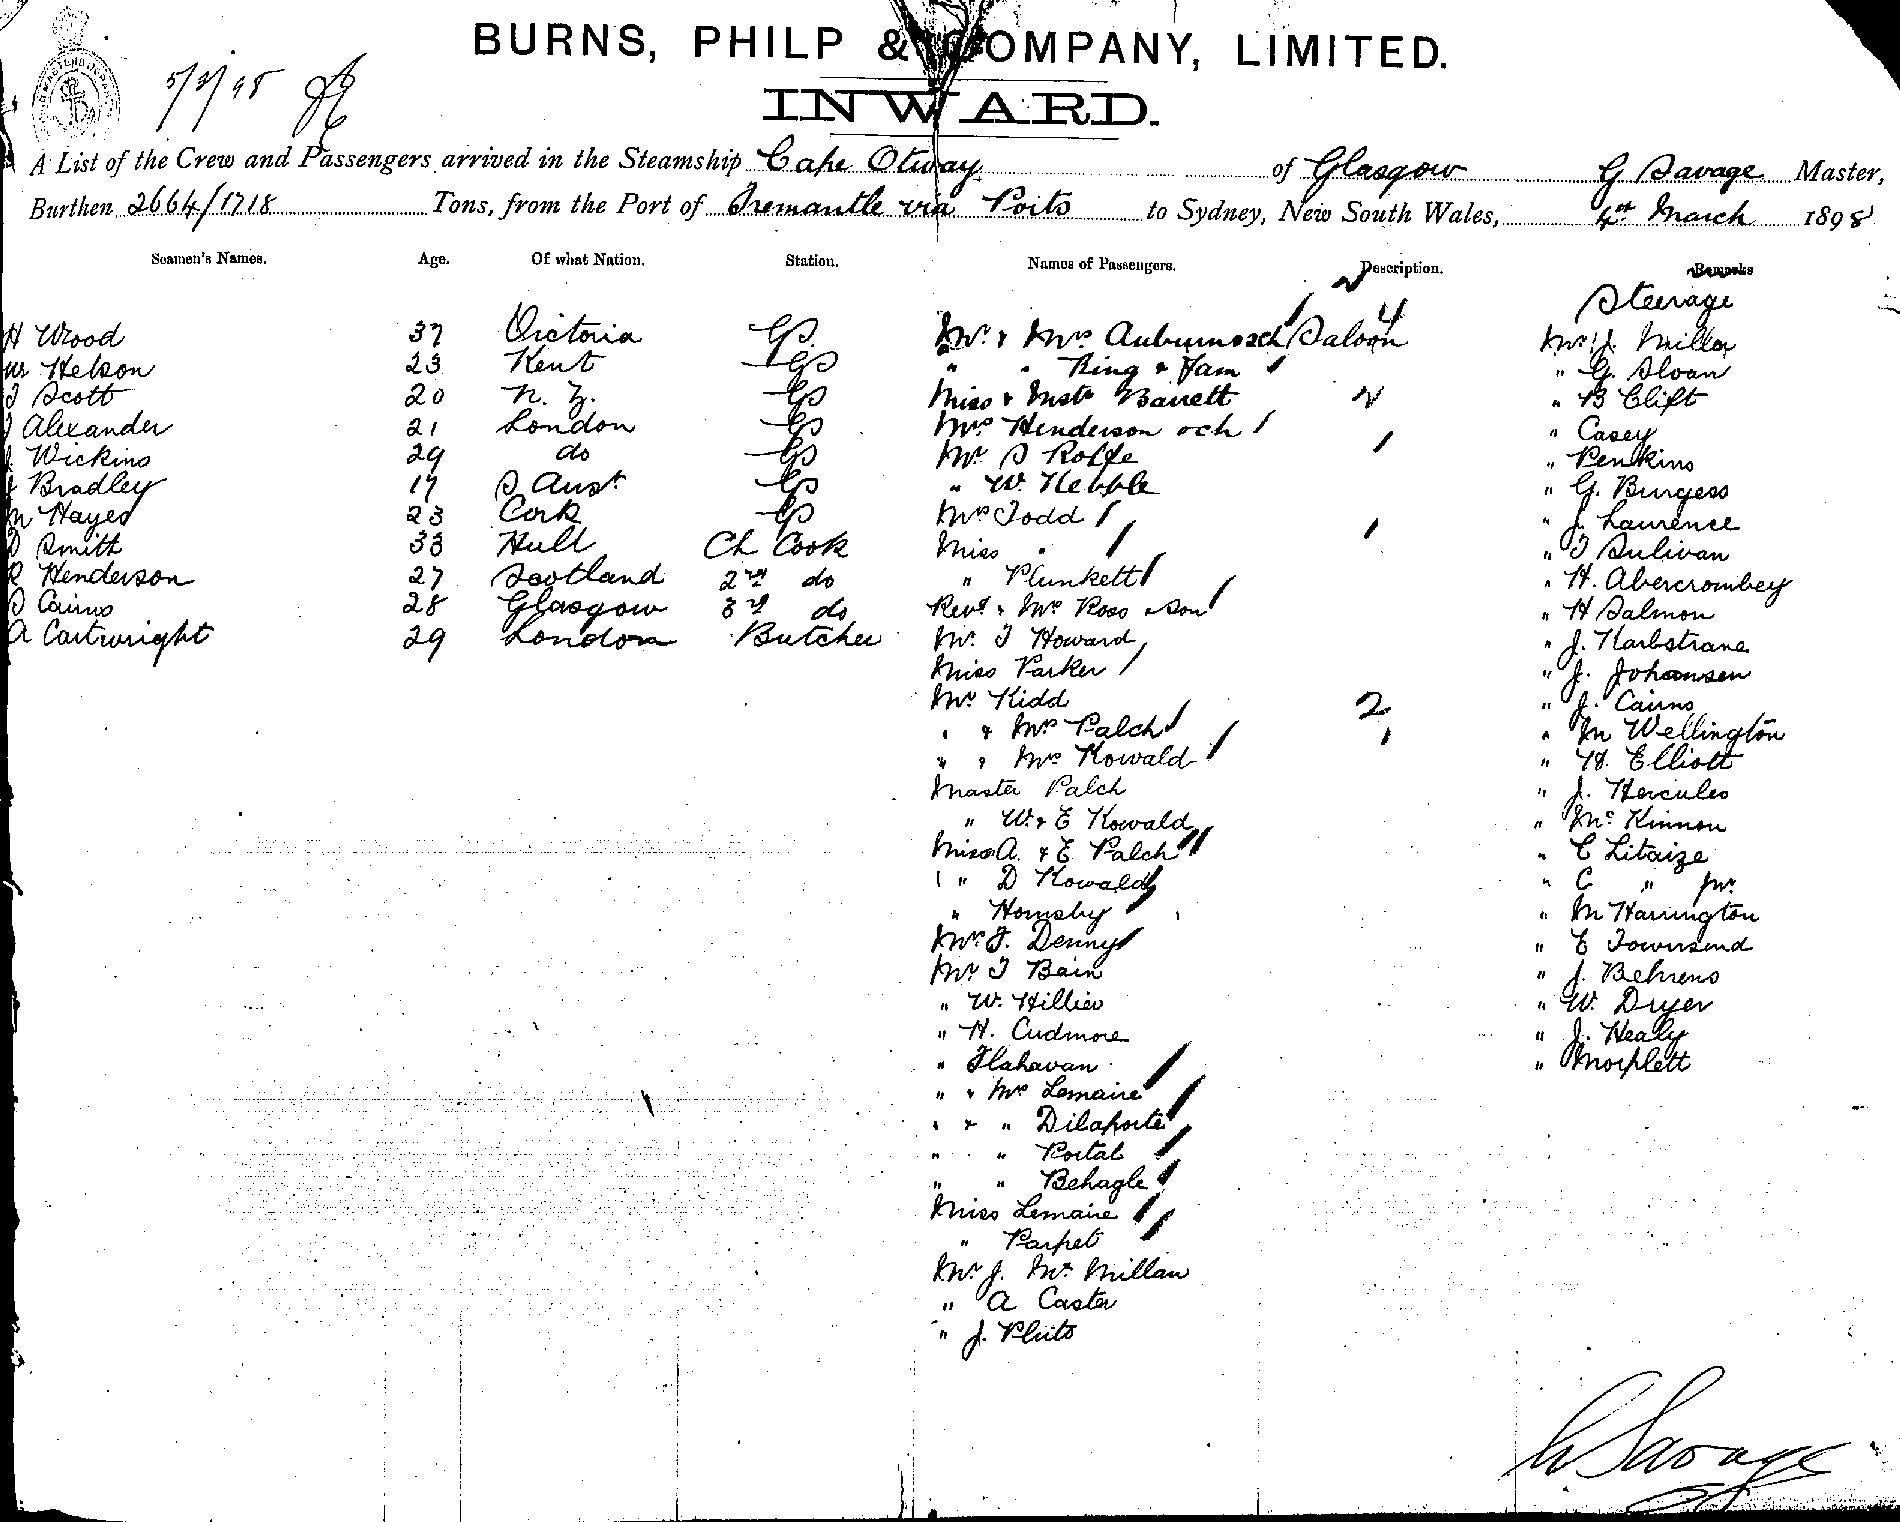 BURNS, PHILP & COMPANY, LIMITED.
INWARD.
5/3/98
A List of the Crew and Passengers arrived in the Steamship Cape Otway of Glasgow G Savage Master,
Burthen 2664/1718 Tons, from the Port of Fremantle via Ports to Sydney, New South Wales, 4th March 1898
Seamen's Names. Age. Of what Nation. Station. Names of Passengers. Description. Remarks
H Wood 37 Victoria GS
Helson 23 Kent GS
Scott 20 N. Z. GS
Alexander 21 London GS
Wickins 29 do GS
Bradley 17 S Aust GS
Hayes 23 Cork GS
Smith 33 Hull Ch Cook
R Henderson 27 Scotland 2nd do
Cairns 28 Glasgow 3rd do
A Cartwright 29 London Butcher
Mr & Mrs Saloon 4
" " King & Fam
Miss & Mstr Barrett 2
Mrs Henderson & ch
Mr S Rolfe
" W. Kebble
Mrs Todd
Miss "
" Plunkett
Revd & Mrs Ross & son
Mr T Howard
Miss Parker
Mr Kidd 2
" & Mrs Palch
" & Mrs Kowald
Master Palch
" W. & E Kowald
Miss A. & E Palch
" D Kowald
" Hornsby
Mrs J. Denny
Mr T Bain
" W. Hillier
" H. Cudmore
" Flahavan
" & Mrs Lemaire
" & " Dilaporte
" " Portal
" " Behagle
Miss Lemaire
" Parpet
Mr J. McMillan
" A Caster
" J. Pluto
Steerage
Mr J. Miller
" G. Sloan
" B Clift
" Casey
" Perkins
" G. Burgess
" J. Laurence
" T Sulivan
" H. Abercrombey
" H Salmon
" J. Karbstrane
" J. Johansen
" J. Cairns
" M Wellington
" H. Elliott
" J. Hercules
" McKinnon
" C Litaize
" C " Jnr
" M Harrington
" E Townsend
" J. Behrens
" W. Dryer
" J. Healy
" Morplett
G Savage